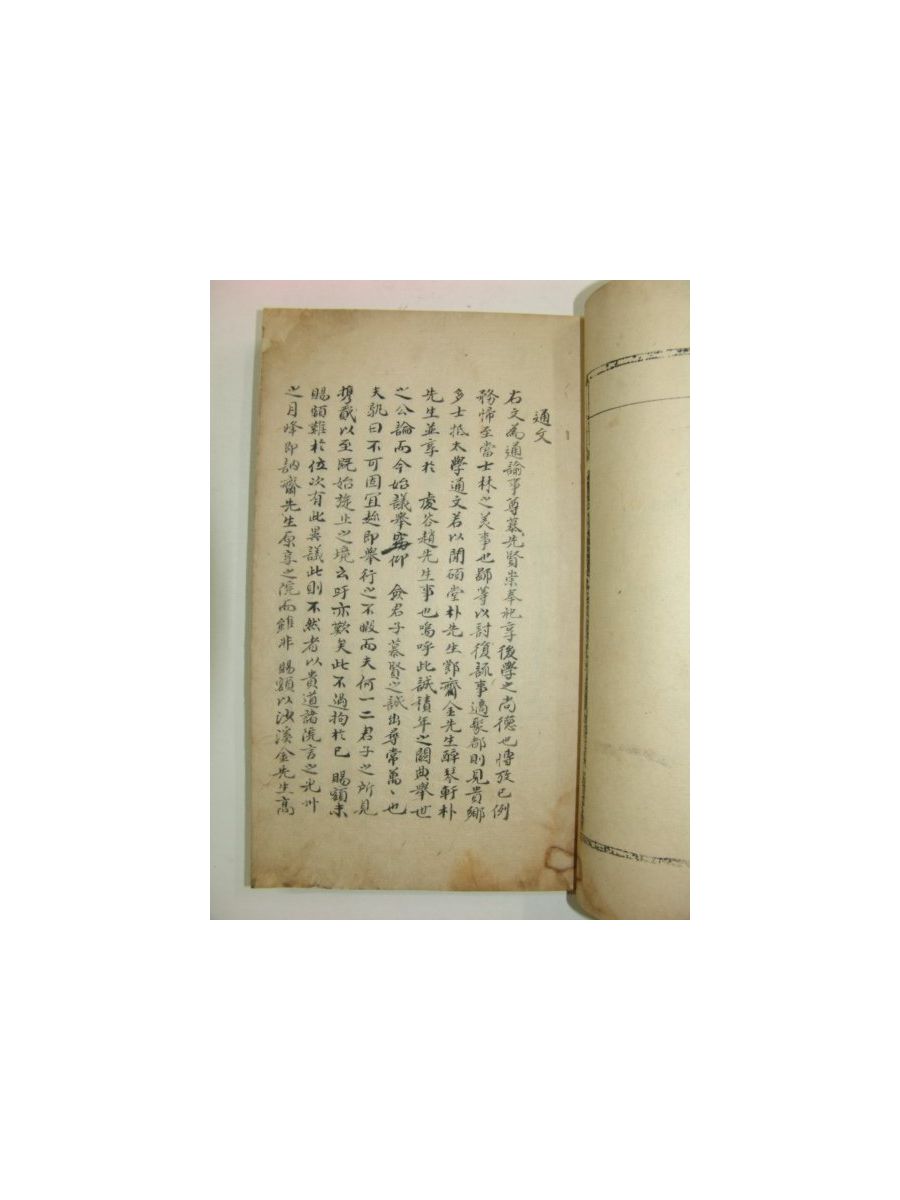 通文
右文為通諭事尊慕先賢崇奉祀享後學之尚德也博攷已例
務恔至當士林之美事也鄙等以討復疏事過聚都則見貴鄉
多士抵太學通文若以閒碩堂朴先生鄭齋金先生醉琴軒朴
先生並享於 虔谷趙先生事也嗚呼此誠積年之闕典舉世
之公論而今始議舉 仰 僉君子慕賢之誠出尋常萬〻也
夫孰曰不可固宜趂即舉行之不暇而夫何一二君子之所見
携貳以至旣始旋止之境云吁亦歎矣此不過拘於已 賜額未
賜額難於位次有此異議此則不然者以貴道諸院言之光州
之月峰即訥齋先生原享之院而雖非 賜額以沙溪金先生高